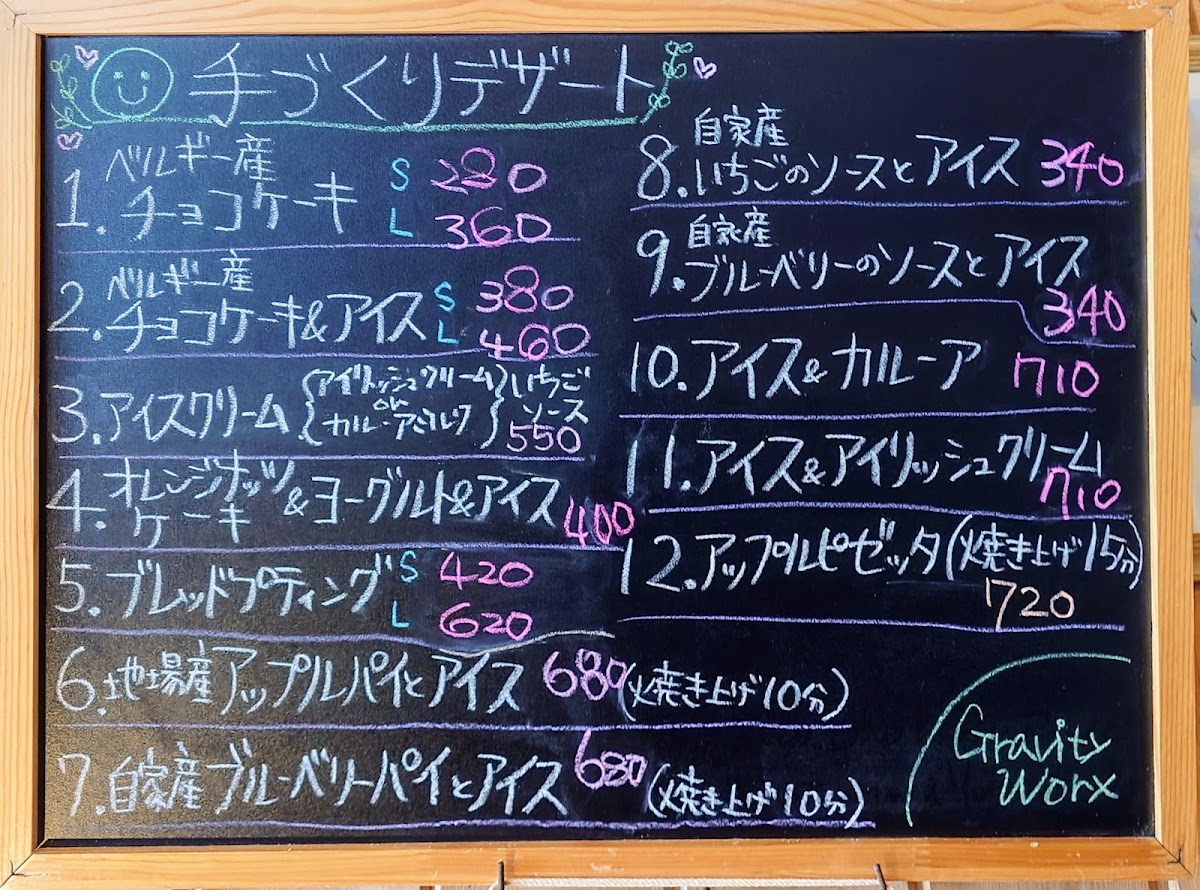 手づくりデザート
1. ベルギー産
チョコケーキ
S 280
L 360
2. ベルギー産
チョコケーキ&アイス
S 380
L 460
3. アイスクリーム
アイリッシュクリーム
or
カルーアミルク
いちご
ソース
550
4. オレンジナッツ
ケーキ
&ヨーグルト&アイス
400
5. ブレッドプティング
S 420
L 620
6. 地場産アップルパイとアイス 680 (焼き上げ10分)
7. 自家産ブルーベリーパイとアイス 680 (焼き上げ10分)
8. 自家産
いちごのソースとアイス 340
9. 自家産
ブルーベリーのソースとアイス
340
10. アイス&カルーア 710
11. アイス&アイリッシュクリーム
710
12. アップルピゼッタ(焼き上げ15分)
720
Gravity
Worx